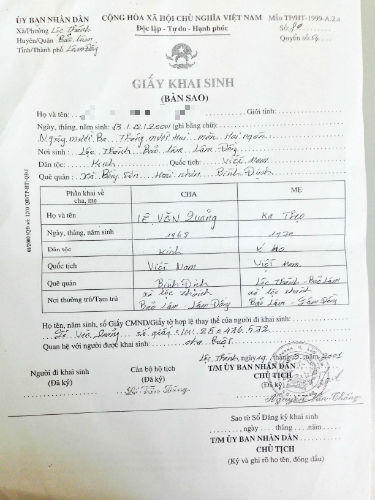 ỦY BAN NHÂN DÂN
CỘNG HÒA XÃ HỘI CHỦ NGHĨA VIỆT NAM
Mẫu TP/HT-1999-A.2.a
Xã/Phường Lộc Thành
Độc lập - Tự do - Hạnh phúc
Số: 80
Huyện/Quận Bảo Lâm
Quyển số:
Tỉnh/Thành phố Lâm Đồng
GIẤY KHAI SINH
(BẢN SAO)
Họ và tên: Giới tính:
Ngày, tháng, năm sinh: 13/12/2000 (ghi bằng chữ)
Ngày mười Ba Tháng mười Hai năm Hai ngàn
Nơi sinh: Lộc Thành Bảo Lâm Lâm Đồng
Dân tộc: Kinh Quốc tịch: Việt Nam
Quê quán: Xã Bồng Sơn Hoài Nhơn Bình Định
Phần khai về cha, mẹ
CHA
MẸ
Họ và tên
LÊ VĂN Quảng
Ka Thẹo
Ngày, tháng, năm sinh
1968
1970
Dân tộc
Kinh
Quốc tịch
Việt Nam
Việt Nam
Quê quán
Bình Định
Lộc Thành - Bảo Lâm
Nơi thường trú/Tạm trú
xã Lộc Thành Bảo Lâm - Lâm Đồng
xã Lộc Thành Bảo Lâm - Lâm Đồng
Họ tên, năm sinh, số Giấy CMND/Giấy tờ hợp lệ thay thế của người đi khai sinh:
Lê Văn Quảng số giấy CM: 250476572
Quan hệ với người được khai sinh: cha ruột
Lộc Thành, ngày 14 tháng 3 năm 2001
Người đi khai sinh
Cán bộ hộ tịch
T/M ỦY BAN NHÂN DÂN
(Đã ký)
(Đã ký)
CHỦ TỊCH
(Đã ký)
Sao từ Sổ Đăng ký khai sinh
, ngày tháng năm
T/M ỦY BAN NHÂN DÂN
CHỦ TỊCH
(Ký và ghi rõ họ tên, đóng dấu)